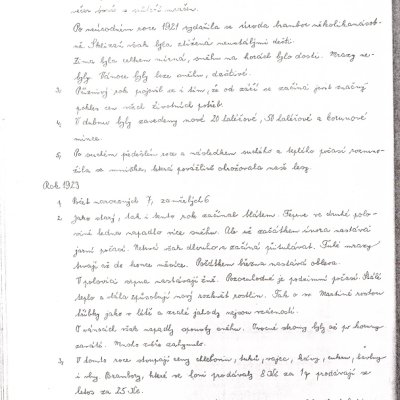 Po neúrodném roce 1921 vydařila se úroda brambor několikanásob-
ně. Sklizeň však byla ztížena neustálými dešti.
Zima byla celkem mírná, sněhu na horách bylo dosti. Mrazy ne-
byly. Vánoce byly beze sněhu, deštivé.
3, Příznivý rok pojevil se i tím, že od září se začíná jevit značný
pokles cen všech životních potřeb.
4, V dubnu byly zavedeny nové 20 haléřové, 50 haléřové a korunové
mince.
5, Po suchém předešlém roce a následkem suchého a teplého počasí rozmno-
žila se mniška, která povážlivě ohrožovala naše lesy.
Rok 1923
1, Dětí narozených 7, zemřelých 6
2, Jako starý, tak i tento rok začínal blátem. Teprve ve druhé polo-
vině ledna napadlo více sněhu. Ale už začátkem února nastává
jarní počasí. Netrvá však dlouho a začíná přituhovat. Tuhé mrazy
trvají až do konce měsíce. Počátkem března nastává obleva.
V polovici srpna nastávají žně. Pozoruhodné je podzimní počasí. Stálé
teplo a vláha způsobily nový rozkvět rostlin. Tak o sv. Martině rostou
hřibky jako v létě a zralé jahody nejsou vzácností.
O vánocích však napadly spousty sněhu. Ovocné stromy byly až po koruny
zaváté. Mnoho zvěře zahynulo.
3, V tomto roce stoupají ceny chlebovin, tuků, vajec, kávy, cukru,
Brambory, které se loni prodávaly 8 Kč za 1q prodávají se
letos za 25 Kč.